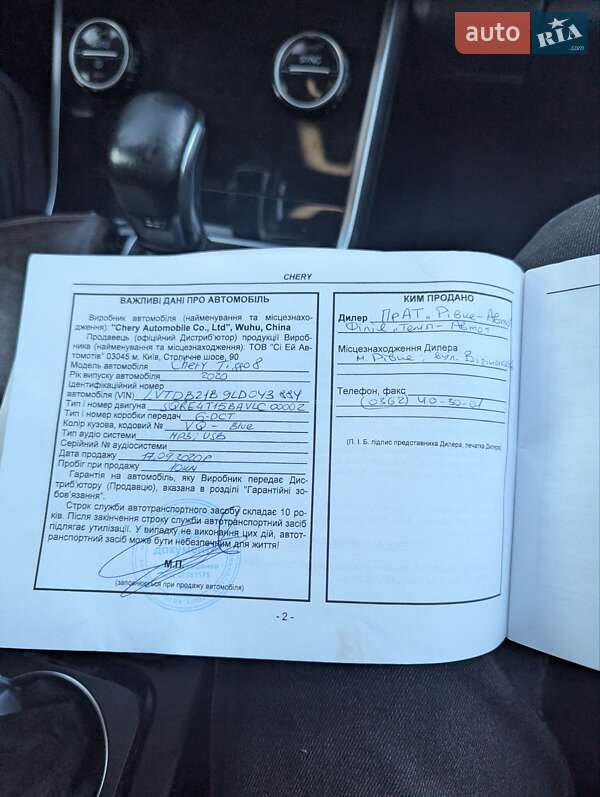 auto RIA.com
SYNC
CHERY
ВАЖЛИВІ ДАНІ ПРО АВТОМОБІЛЬ
Виробник автомобіля (найменування та місцезнаходження): "Chery Automobile Co., Ltd", Wuhu, China
Продавець (офіційний Дистриб'ютор) продукції Виробника (найменування та місцезнаходження): ТОВ "Сі Ей Автомотів" 03045 м. Київ, Столичне шосе, 90
Модель автомобіля Chery Tiggo 8
Рік випуску автомобіля 2020
Ідентифікаційний номер
автомобіля (VIN)
Тип і номер двигуна SQRE4T15BAVLC00002
Тип і номер коробки передач 6-DCT
Колір кузова, кодовий № VQ - Blue
Тип аудіо системи MP3, USB
Серійний № аудіосистеми
Дата продажу 17.09.2020р
Пробіг при продажу 10км
Гарантія на автомобіль, яку Виробник передає Дистриб'ютору (Продавцю), вказана в розділі "Гарантійні зобов'язання".
Строк служби автотранспортного засобу складає 10 років. Після закінчення строку служби автотранспортний засіб підлягає утилізації. У випадку не виконання цих дій, автотранспортний засіб може бути небезпечним для життя!
М.П.
(заповнюється при продажу автомобіля)
КИМ ПРОДАНО
Дилер ПрАТ "Рівне-Авто"
Філія "Темп-Авто"
Місцезнаходження Дилера
м. Рівне, вул.
Телефон, факс
(0362) 40-30-01
(П. І. Б. підпис представника Дилера, печатка Дилера)
- 2 -